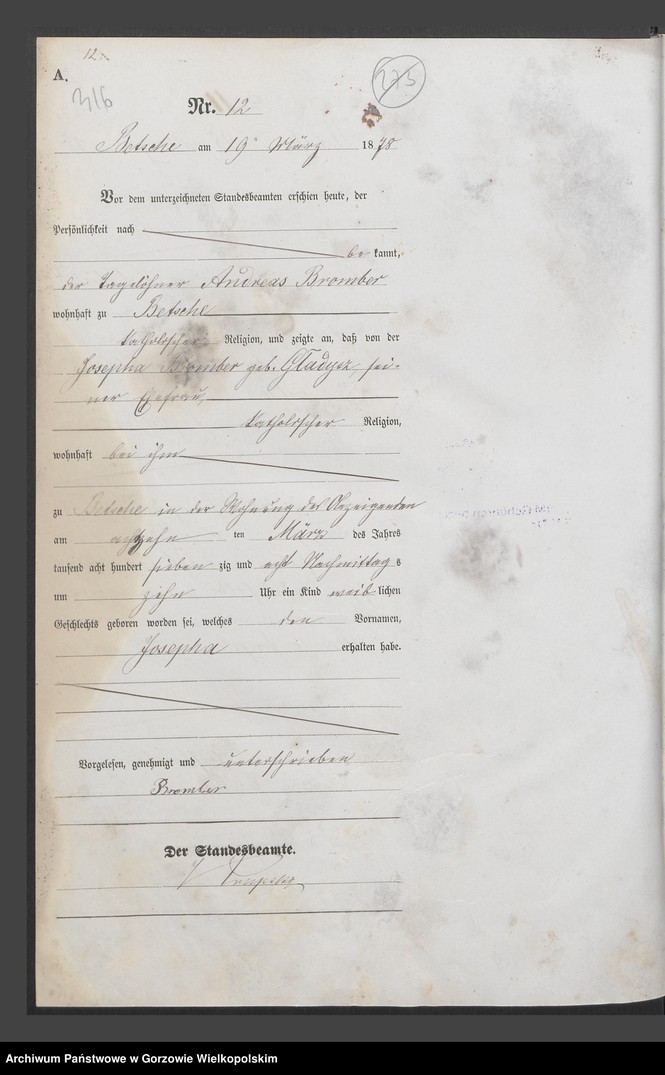 12.
A.
316
275
Nr. 12
Betsche am 19 März 1878
Vor dem unterzeichneten Standesbeamten erschien heute, der
Persönlichkeit nach
be kannt,
der Tagelöhner Andreas Bromber
wohnhaft zu Betsche
katholischer Religion, und zeigte an, daß von der
Josepha Bromber geb. Gladysz, sei-
ner Ehefrau,
katholischer Religion,
wohnhaft bei ihm
zu Betsche in der Wohnung des Anzeigenden
am achtzehn ten März des Jahres
tausend acht hundert sieben zig und acht Nachmittag s
um zehn Uhr ein Kind weib lichen
Geschlechts geboren worden sei, welches den Vornamen,
Josepha erhalten habe.
Vorgelesen, genehmigt und unterschrieben
Bromber
Der Standesbeamte.
Archiwum Państwowe w Gorzowie Wielkopolskim